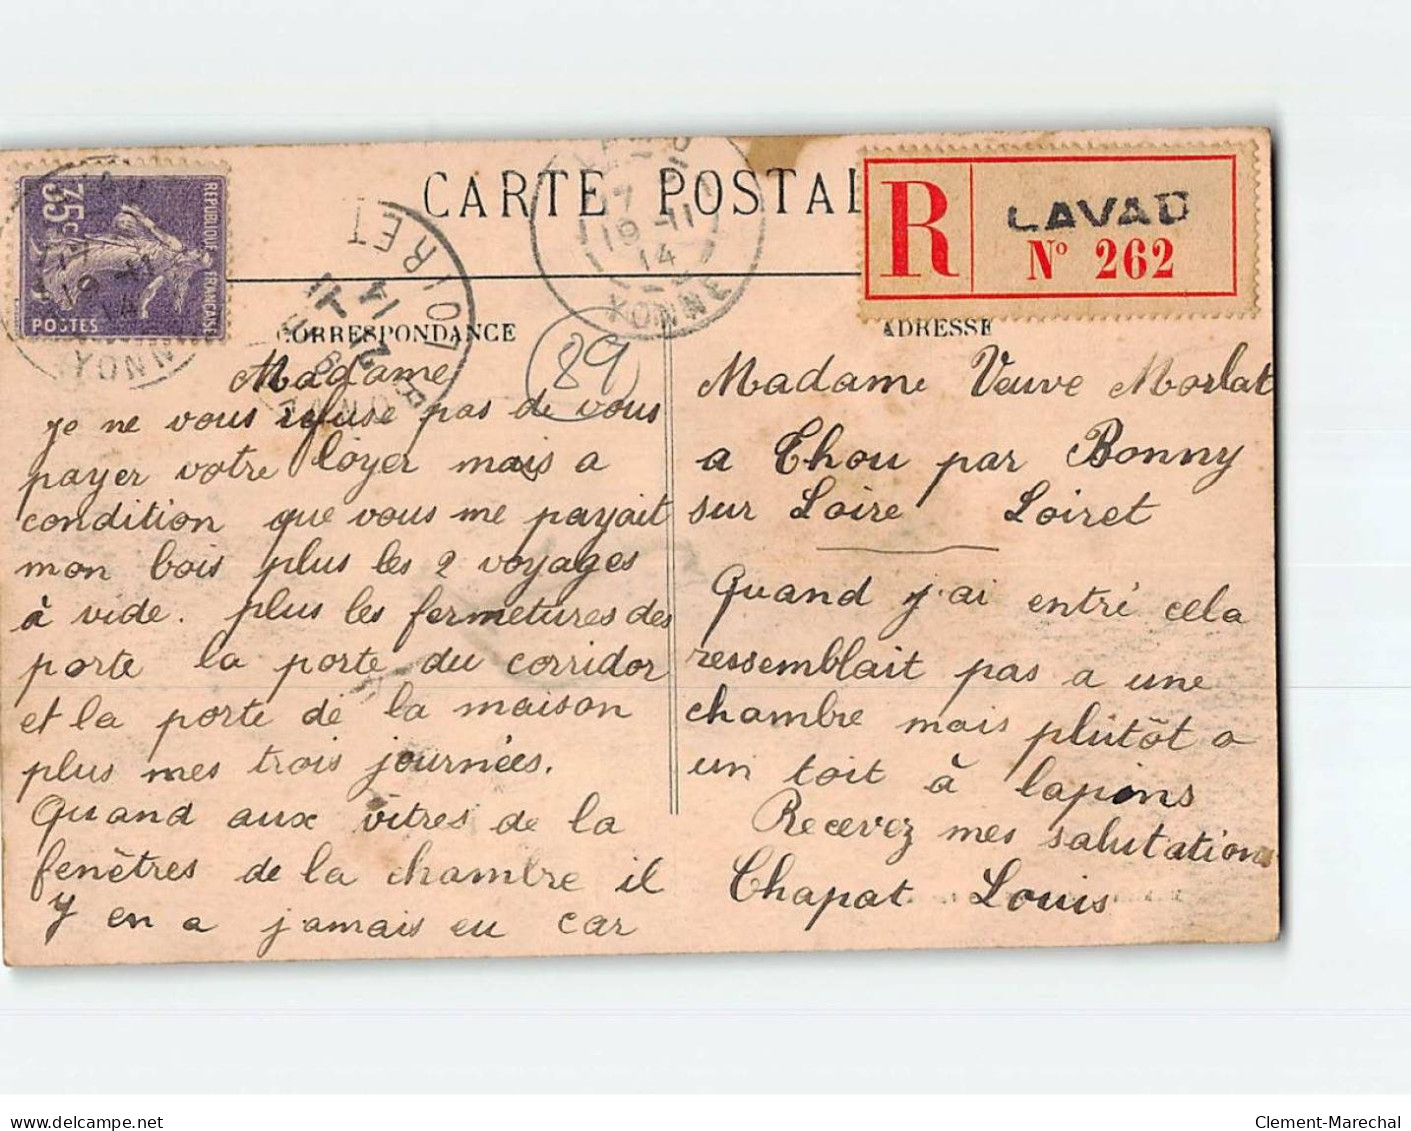 CARTE POSTAL
R
LAVAU
N° 262
35c
RÉPUBLIQUE FRANÇAISE
POSTES
19 -11
14
YONNE
17
19 -11
14
YONNE
LOIRET
CORRESPONDANCE
ADRESSE
89
Madame
je ne vous refuse pas de vous
payer votre loyer mais a
condition que vous me payait
mon bois plus les 2 voyages
à vide. plus les fermetures des
porte la porte du corridor
et la porte de la maison
plus mes trois journées.
Quand aux vitres de la
fenêtres de la chambre il
y en a jamais eu car
Madame Veuve Morlat
a Thou par Bonny
sur Loire Loiret
Quand j'ai entré cela
ressemblait pas a une
chambre mais plutôt a
un toit à lapins
Recevez mes salutations
Chapat Louis
Clement-Marechal